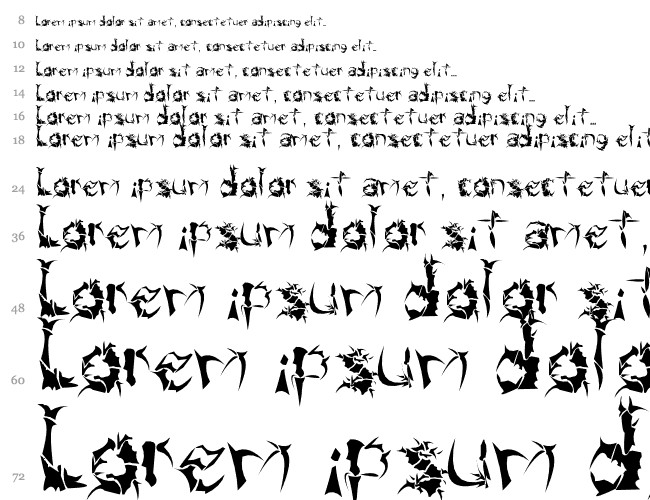 8 Lorem ipsum dolor sit amet, consectetuer adipiscing elit...
10 Lorem ipsum dolor sit amet, consectetuer adipiscing elit...
12 Lorem ipsum dolor sit amet, consectetuer adipiscing elit...
14 Lorem ipsum dolor sit amet, consectetuer adipiscing elit...
16 Lorem ipsum dolor sit amet, consectetuer adipiscing elit...
18 Lorem ipsum dolor sit amet, consectetuer adipiscing elit
24 Lorem ipsum dolor sit amet, consectetuer
36 Lorem ipsum dolor sit amet,
48 Lorem ipsum dolor sit
60 Lorem ipsum dolo
72 Lorem ipsum d